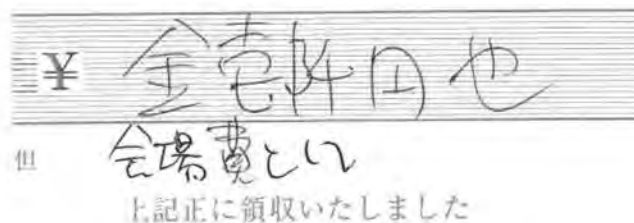 ¥ 金壱阡円也
但 会場費として
上記正に領収いたしました